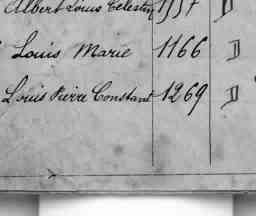 Albert Louis Celestin 1157 D
Louis Marie 1166 D
Louis Pierre Constant 1269 D